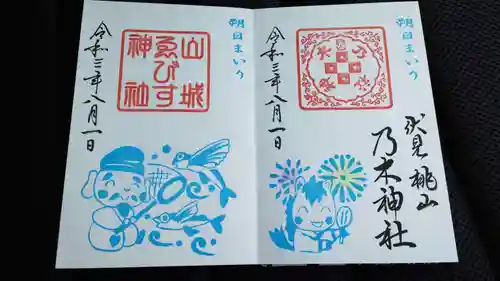 朔日まいり
伏見桃山
乃木神社
令和三年八月一日
朔日まいり
山城
ゑびす
神社
令和三年八月一日